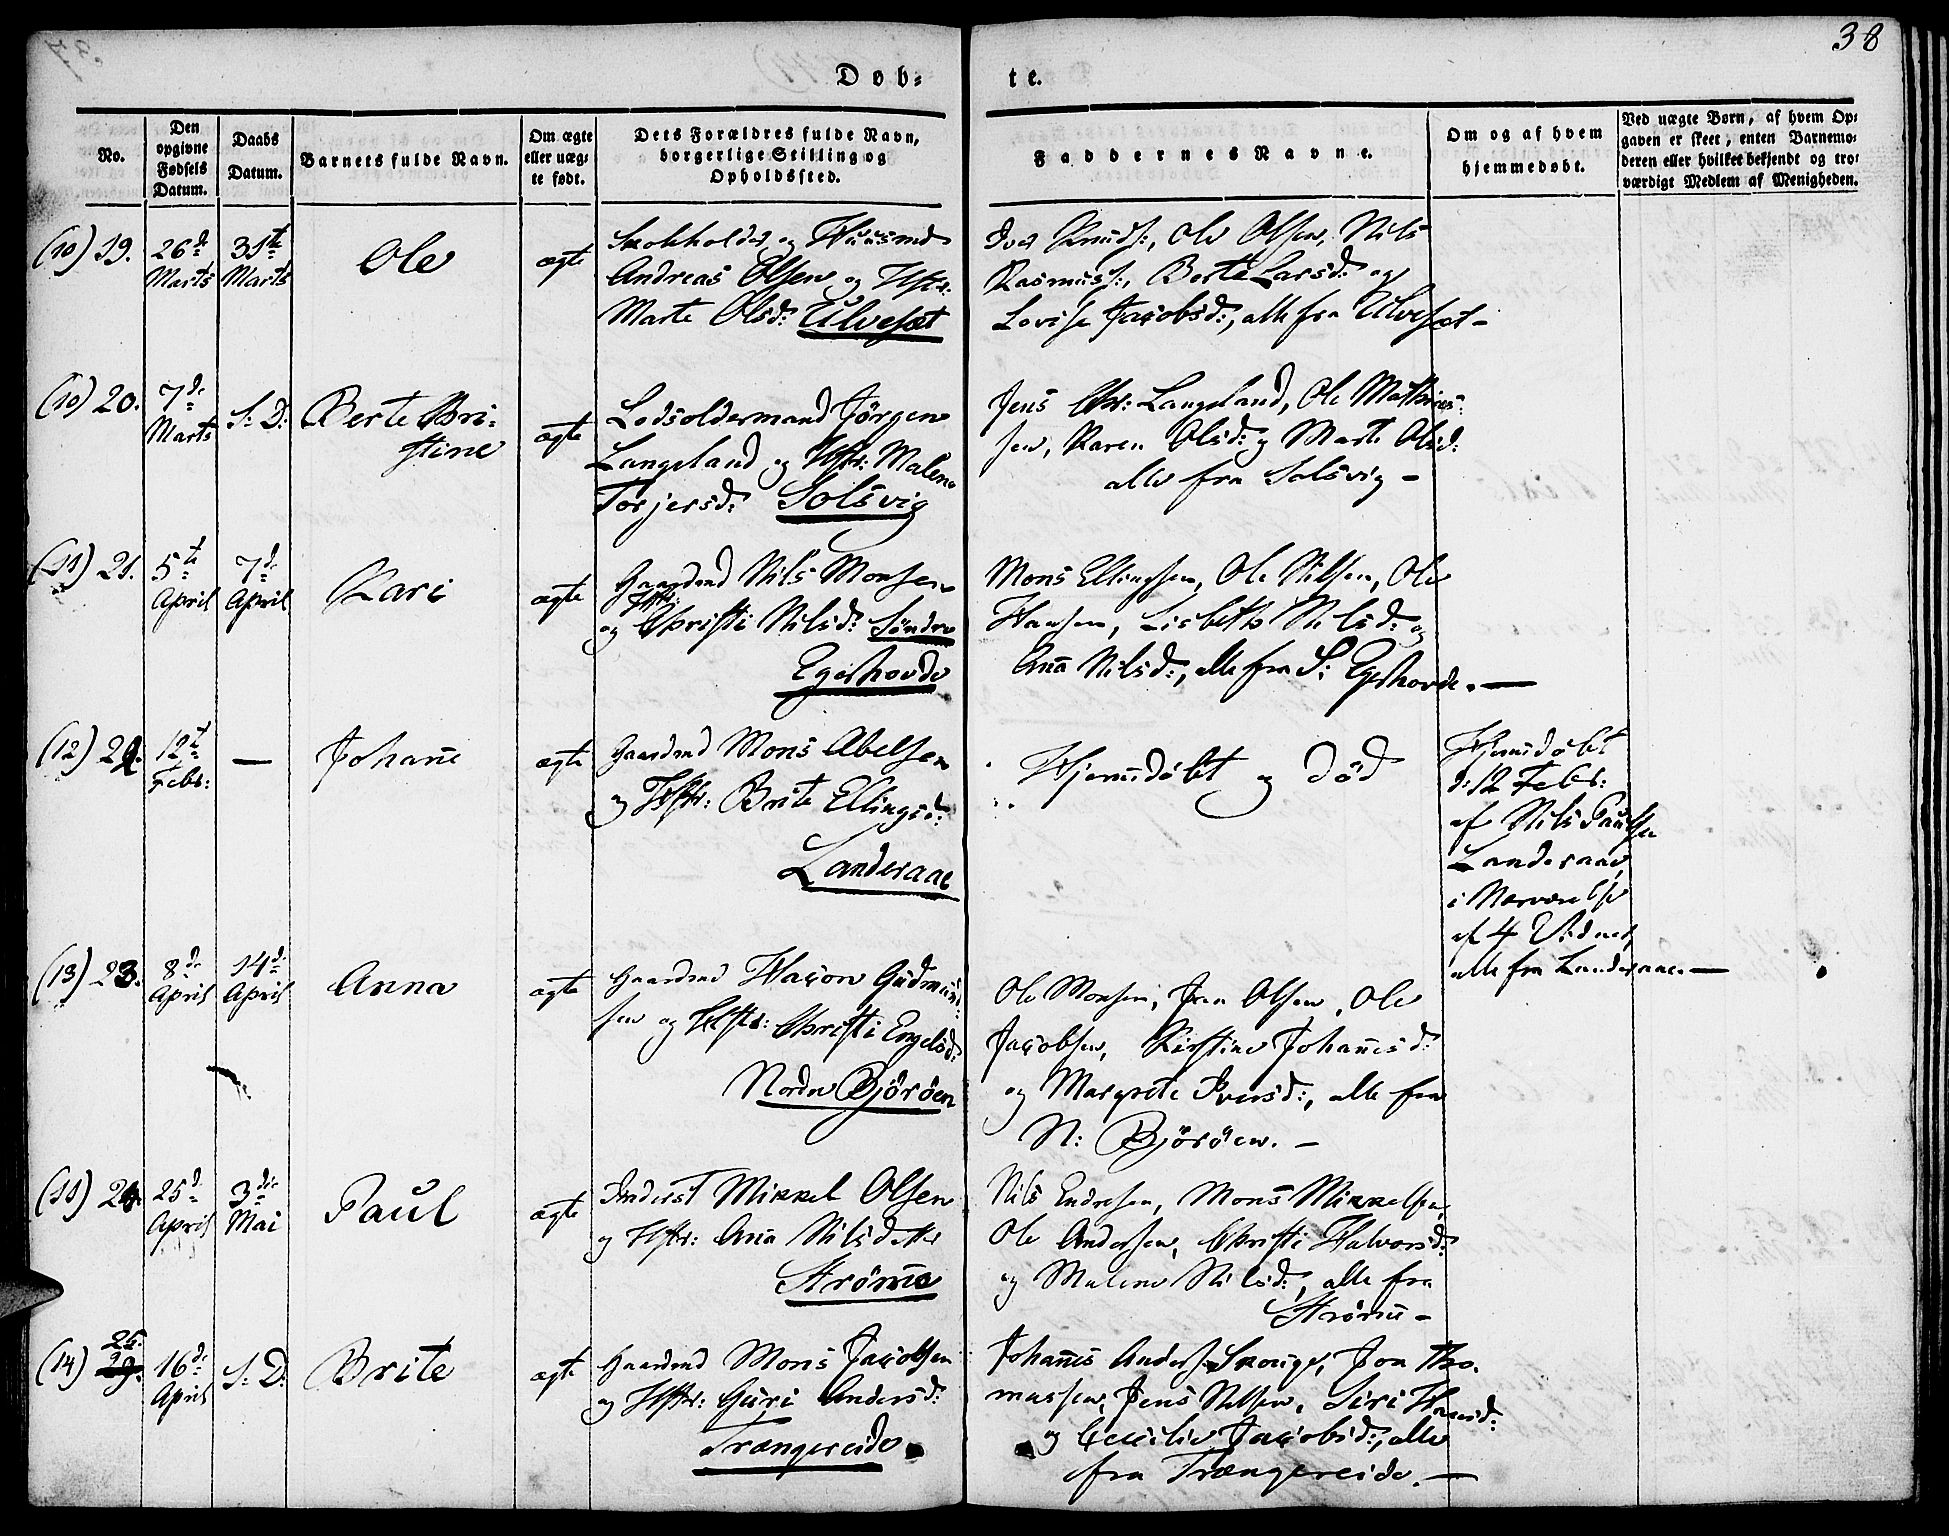 38
Døb-
te.
No.
Den opgivne Fødsels Datum.
Daabs Datum.
Barnets fulde Navn.
Om ægte eller uæg-
te født.
Dets Forældres fulde Navn,
borgerlige Stilling og
Opholdssted.
Faddernes Navne.
Om og af hvem
hjemmedøbt.
Ved uægte Børn, af hvem Op-
gaven er skeet, enten Barnemo-
deren eller hvilket bekjendt og tro-
værdigt Medlem af Menigheden.
(10) 19.
26de
Marts
31te
Marts
Ole
ægte
og Huusmd
Andreas Olsen og Hstr:
Marte Olsd: Ulveset
Iver Knuds:, Ole Olsen, Nils
Rasmuss:, Berte Larsd: og
Lovise Jacobsd:, alle fra Ulveset -
(10) 20.
7de
Marts
S: D:
Berte Chri-
stine
ægte
Lodsoldermand Jörgen
Langeland og Hstr: Malene
Torjersd: Solsvig
Jens Chr: Langeland, Ole Mathies-
sen, Karen Olsd: og Marte Olsd:
alle fra Solsvig -
(11) 21.
5te
April
7de
April
Kari
ægte
Gaardmd Nils Monsen
og Hstr: Christi Nilsd: Söndre
Egeshovde
Mons Ellingsen, Ole Nilsen, Ole
Hansen, Lisbeth Nilsd: og
Ana Nilsd:, alle fra S: Egeshovde. -
(12) 22.
12te
Febr:
-
Johane
ægte
Gaardmd Mons Abelsen
og Hstr: Brite Ellingsd:
Landeraae
Hjemdöbt og död
Hjemdöbt
d: 12 Febr:
af Nils Paulsen
Landeraae,
i Nærværelse
af 4 Vidner,
alle fra Landeraae. -
(13) 23.
8de
April
14de
April
Anna
ægte
Gaardmd Hacon Gudmund-
sen og Hstr: Christi Engelsd:
Nordre Björöen
Ole Monsen, Jon Olsen, Ole
Jacobsen, Kirstine Johanesd:
og Margrete Iversd:, alle fra
N: Björöen. -
(11) 24.
25de
April
3die
Mai
Paul
ægte
Mikkel Olsen
og Hstr: Ana Nilsdatter
Ströme
Nils Endresen, Mons Mikkelsen,
Ole Andersen, Christi Halvorsd:
og Malene Nilsd:, alle fra
Ströme -
(14) 25.
16de
April
S: D:
Brite
ægte
Gaardmd Mons Jacobsen
og Hstr: Guri Andersd:
Trængereide
Johanes Anders: Skouge, Jon Tho-
massen, Jens Nilsen, Siri Hansd:
og Cecilie Jacobsd:, alle
fra Trængereide. -